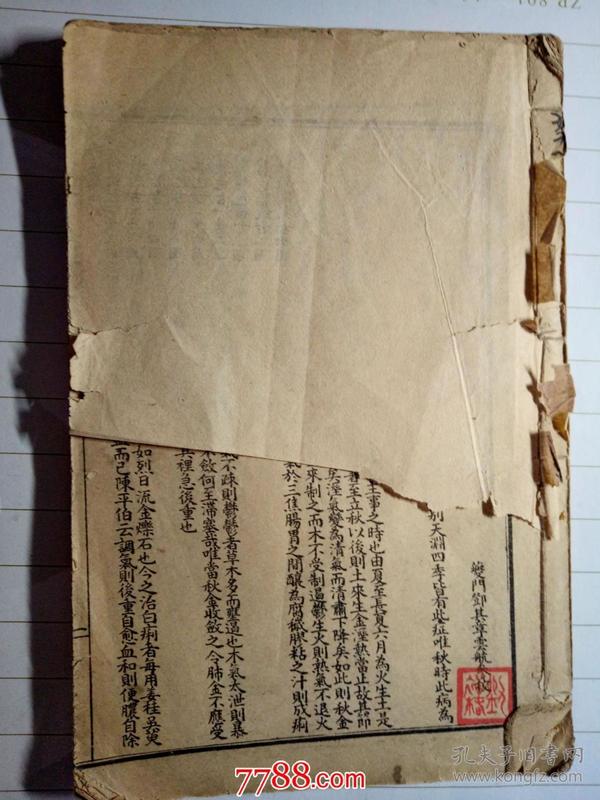 門鄧其章雲航
別天淵四季皆有此症唯秋時此病為
主事之時也由夏至長夏六月為火生土是
至立秋以後則土來生金溼熱當止故其
矣溼氣變為清氣而清肅下降矣如此則秋金
來制之而木不受制遏鬱生火則熱氣不退火
氣於三焦腸胃之間釀為腐穢膠粘之汁則成痢
不疎則鬱鬱者草木多而壅遏也木氣太泄則暴
不斂何至滯塞哉唯當秋金收斂之令肺金不應受
其裡急後重也
如烈日流金爍石也今之治白痢者每用姜桂吳萸
而已陳平伯云調氣則後重自愈血和則便膿自除
7788.com
孔夫子旧书网
www.kongfz.com